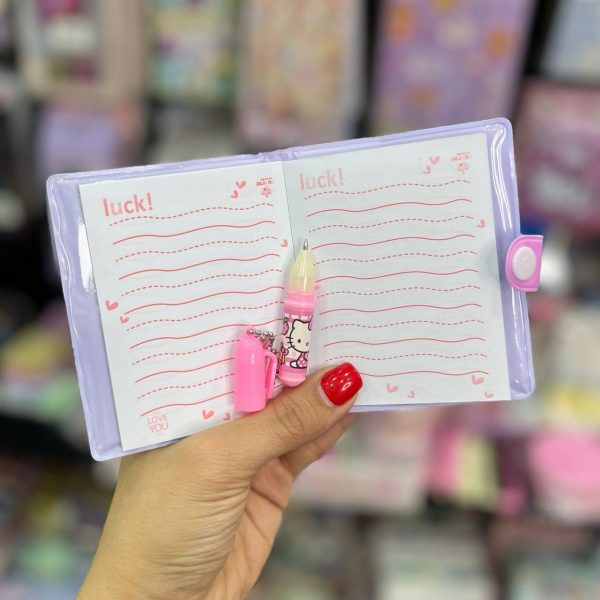 luck!
LOVE
YOU
luck!